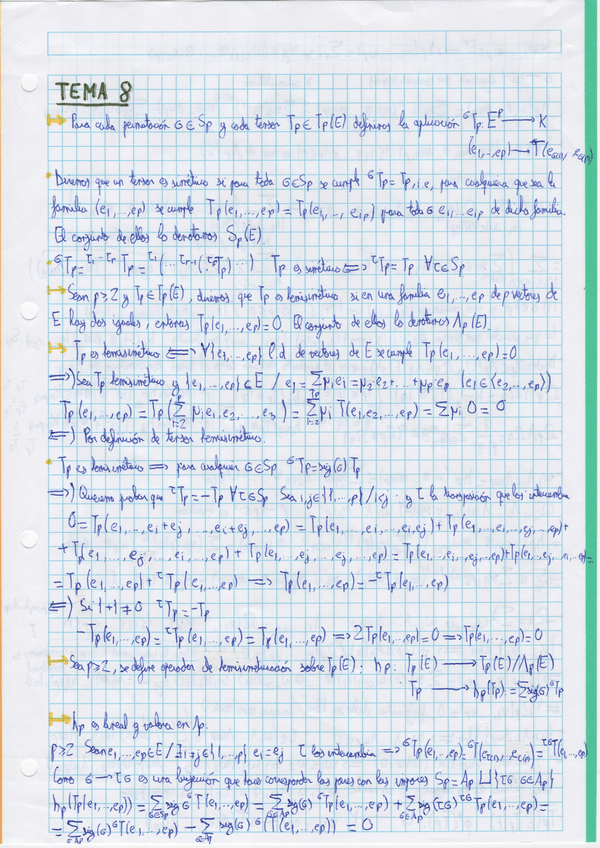 TEMA 8
Para cada permutación σ∈Sp y cada tensor Tp∈Tp(E) definimos la aplicación ᶢTp: E^p → K
(e1,...,ep) → T(eσ(1),...,eσ(p))
Diremos que un tensor es simétrico si para toda σ∈Sp se cumple ᶢTp=Tp, i.e, para cualquiera que sea la
familia (e1,...,ep) se cumple Tp(e1,...,ep)=Tp(ei1,...,eip) para todo σ ei1...eip de dicha familia.
El conjunto de ellos lo denotamos Sp(E)
Tp es simétrico ⟺ ᵗTp=Tp ∀τ∈Sp
Sean p≥2 y Tp∈Tp(E), diremos que Tp es hemisimétrico si en una familia e1,...,ep de p vectores de
E hay dos iguales, entonces Tp(e1,...,ep)=0. El conjunto de ellos lo denotamos Λp(E).
Tp es hemisimétrico ⟺ ∀{e1,...,ep} l.d de vectores de E se cumple Tp(e1,...,ep)=0
⟹) Sea Tp hemisimétrico y {e1,...,ep}⊆E / e1=∑μiei=μ2e2+...+μpep (e1∈⟨e2,...,ep⟩)
Tp(e1,...,ep)=Tp(∑μiei,e2,...,e3)=∑μi T(ei,e2,...,ep)=∑μi 0=0
⟸) Por definición de tensor hemisimétrico.
Tp es hemisimétrico ⟹ para cualquier σ∈Sp ᶢTp=sig(σ)Tp
⟹) Queremos probar que ᵗTp=-Tp ∀τ∈Sp Sea i,j∈{1,...,p}/i<j y τ la transposición que los intercambia
0=Tp(e1,...,ei+ej,...,ei+ej,...,ep)=Tp(e1,...,ei,...,ei,ej)+Tp(e1,...,ei,...,ej,...,ep)+
+Tp(e1,...,ej,...,ei,...,ep)+Tp(e1,...,ej,...,ej,...,ep)=Tp(e1,...,ei,...,ej,...,ep)+Tp(e1,...,ej,...,ei,...,ep)=
=Tp(e1,...,ep)+ᵗTp(e1,...,ep) ⟹ Tp(e1,...,ep)=-ᵗTp(e1,...,ep)
⟸) Si 1+1≠0 ᵗTp=-Tp
-Tp(e1,...,ep)=ᵗTp(e1,...,ep)=Tp(e1,...,ep) ⟹ 2Tp(e1,...,ep)=0 ⟹ Tp(e1,...,ep)=0
Sea p≥2, se define operador de hemisimetrización sobre Tp(E): hp: Tp(E) → Tp(E)//Λp(E)
Tp → hp(Tp)=∑sig(σ)ᶢTp
hp es lineal y valora en Λp.
p≥2 Sean e1,...,ep∈E / ∃i≠j∈{1,...,p} ei=ej τ los intercambia ⟹ ᶢTp(e1,...,ep)=
Como σ → τσ es una biyección que hace corresponder las pares con las impares Sp=Ap⊔{τσ σ∈Ap}
hp(Tp(e1,...,ep))=∑sig σ ᶢT(e1,...,ep)=∑sig(σ) ᶢTp(e1,...,ep)+∑sig(τσ) Tp(e1,...,ep)=
=∑sig(σ)ᶢT(e1,...,ep) - ∑sig(σ) ᶢ(T(e1,...,ep)) = 0